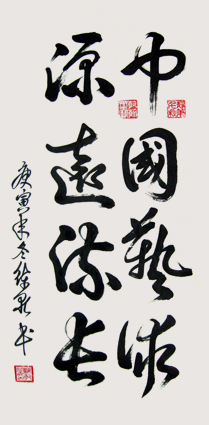 中國藝術
源遠流長
庚寅年冬